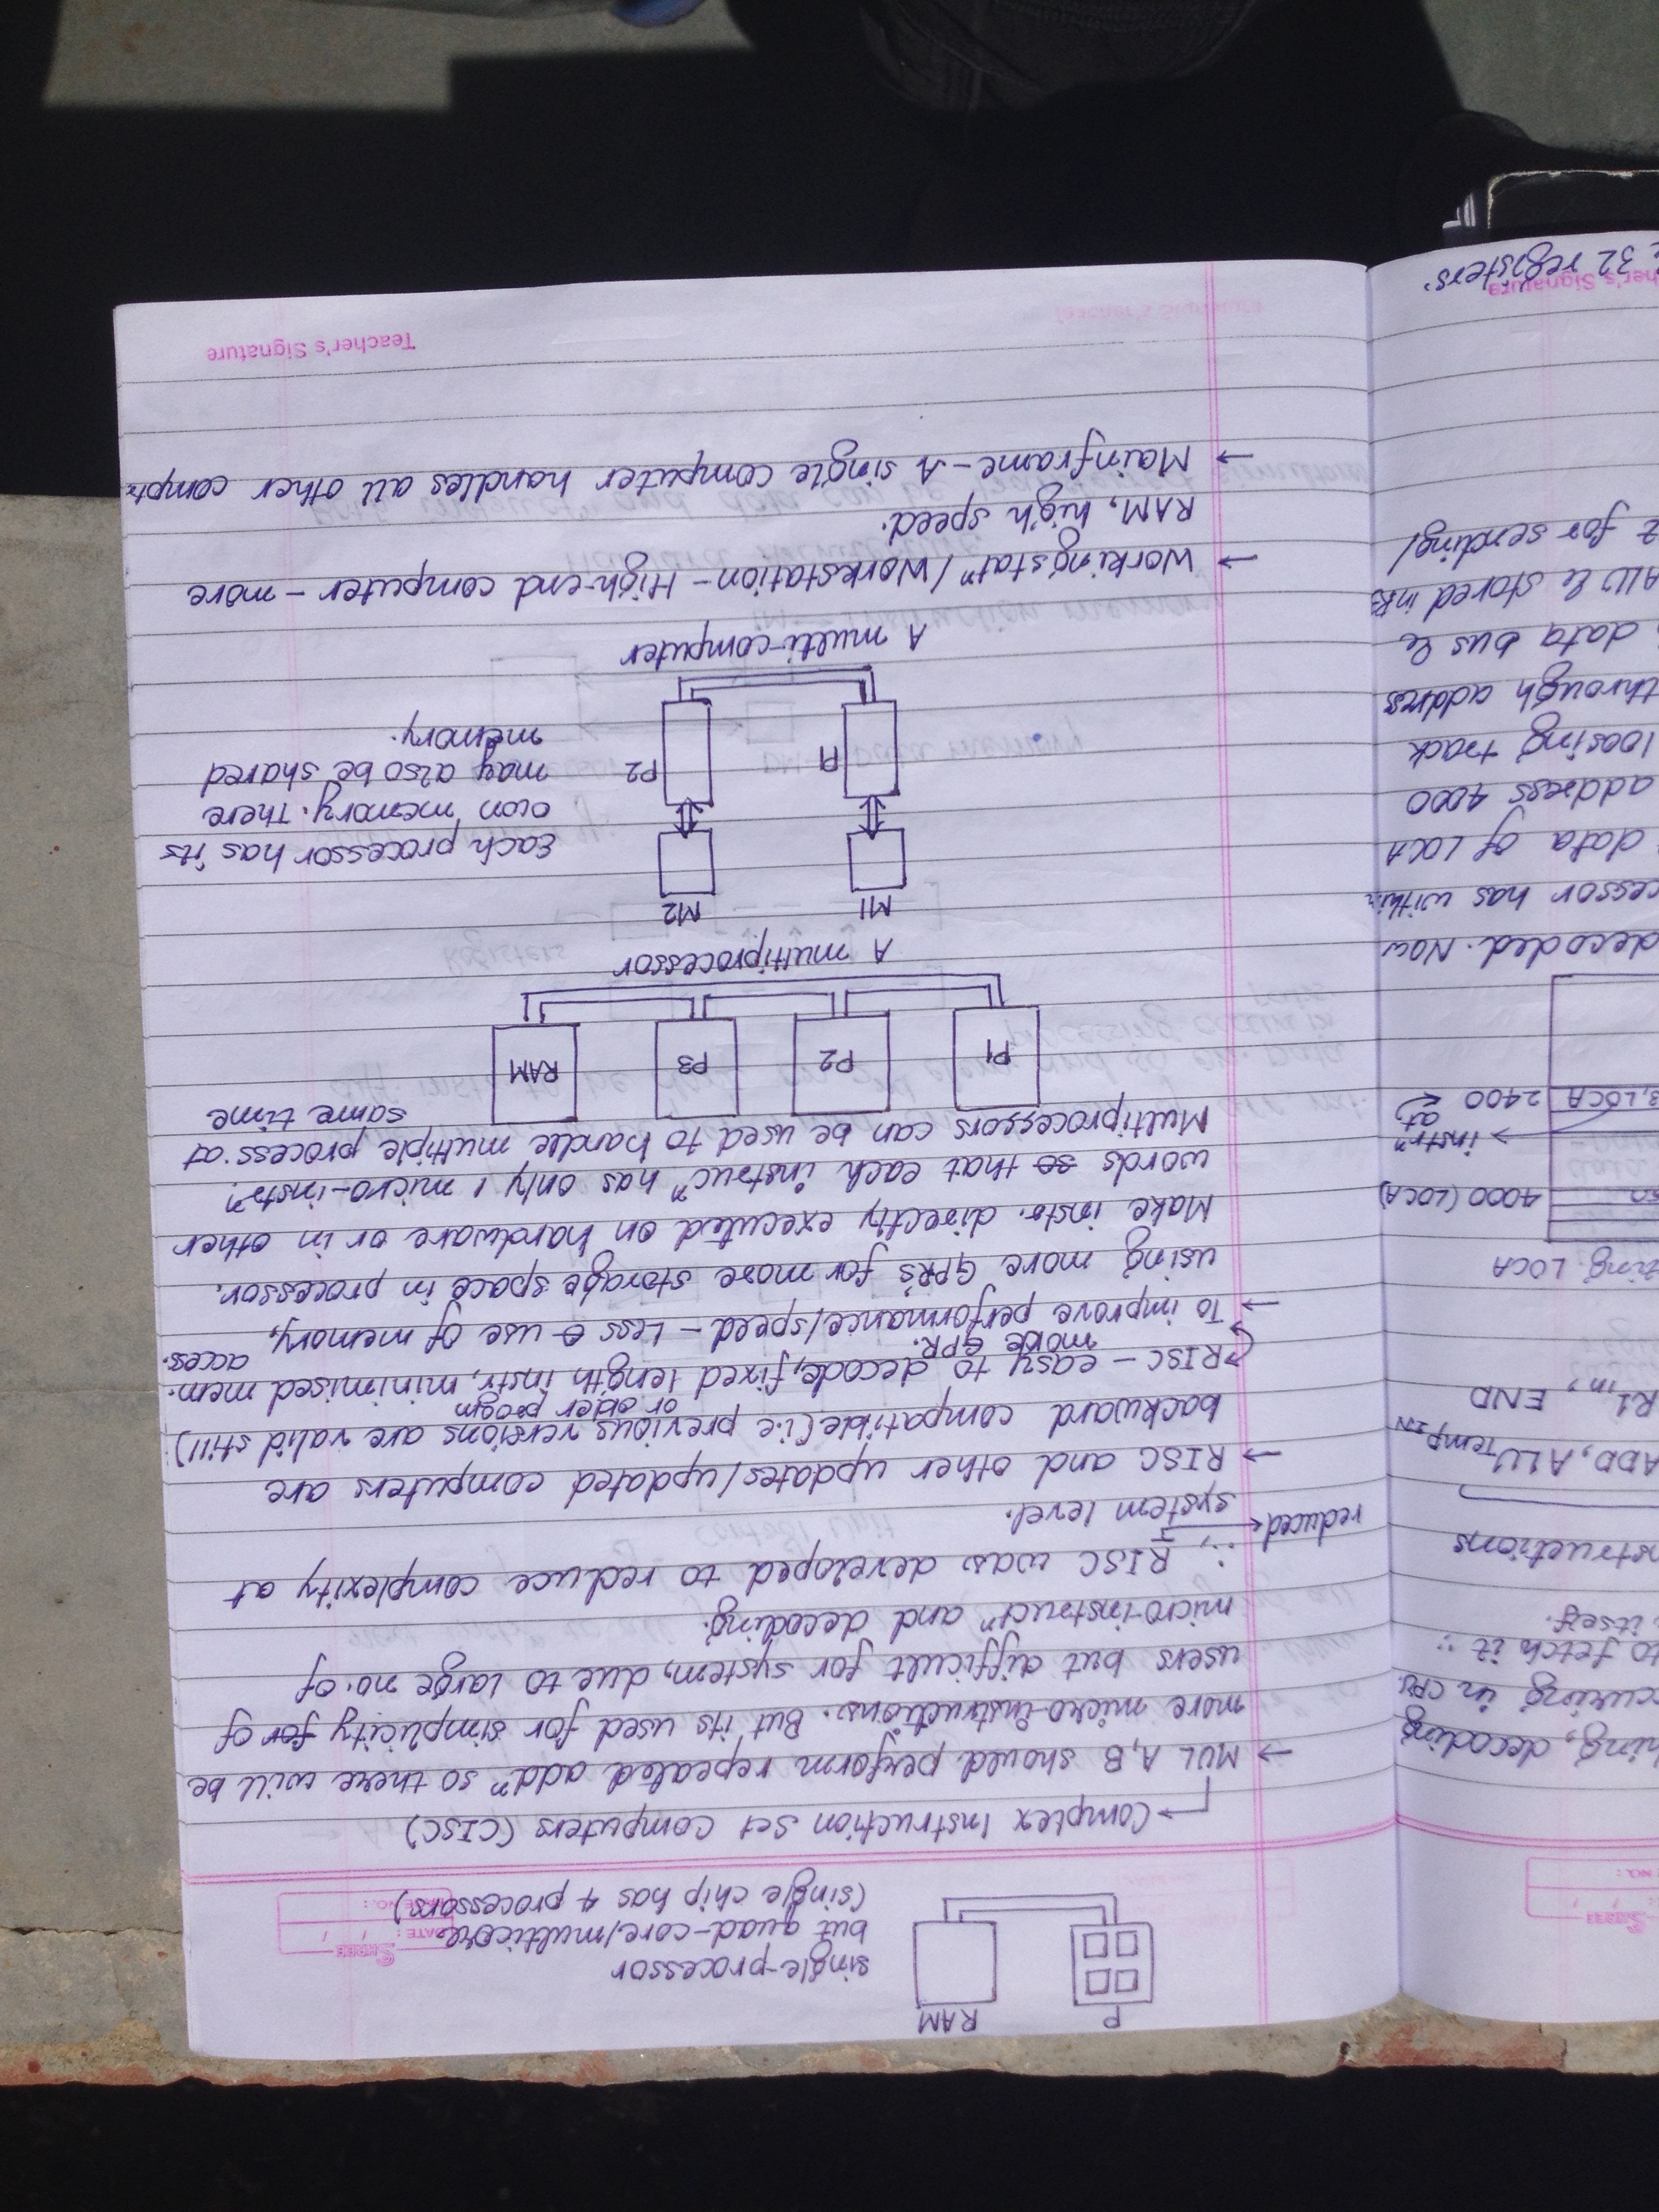 SHREE
NO.:
hing, decoding
ccuring in CPU.
to fetch it ∵
itself.
nstructions
ADD, ALU TempIN
R1in, END
ting LOCA
4000 (LOCA)
instrⁿ
at
3, LOCA 2400
decoded. Now
cessor has within
data of LOCA
address 4000
loosing track
through address
data bus &
ALU & stored in R3
for sending/
her's Signature
32 registers.
P RAM
single-processor
but quad-core/multicore
(single chip has 4 processors)
SHREE
DATE: / /
PAGE NO.:
Complex Instruction Set Computers (CISC)
→ MUL A,B should perform repeated addⁿ so there will be
more micro-instructions. But its used for simplicity for of
users but difficult for system, due to large no. of
micro-instructⁿ and decoding.
∴, RISC was developed to reduce complexity at
reduced
system level.
→ RISC and other updates/updated computers are
backward compatible (i.e previous versions are valid still)
or older progm
RISC – easy to decode, fixed length instr, minimised mem.
access.
more GPR.
→ To improve performance/speed – Less use of memory,
using more GPR's for more storage space in processor.
Make instr. directly executed on hardware or in other
words so that each instrucⁿ has only 1 micro-instrⁿ.
Multiprocessors can be used to handle multiple process at
same time
P1 P2 P3 RAM
A multiprocessor
M1 M2
Each processor has its
own memory. There
P1 P2 may also be shared
memory.
A multi-computer
→ Workingstatⁿ/Workstation – High-end computer – more
RAM, high speed.
→ Mainframe – A single computer handles all other comptr
Teacher's Signature